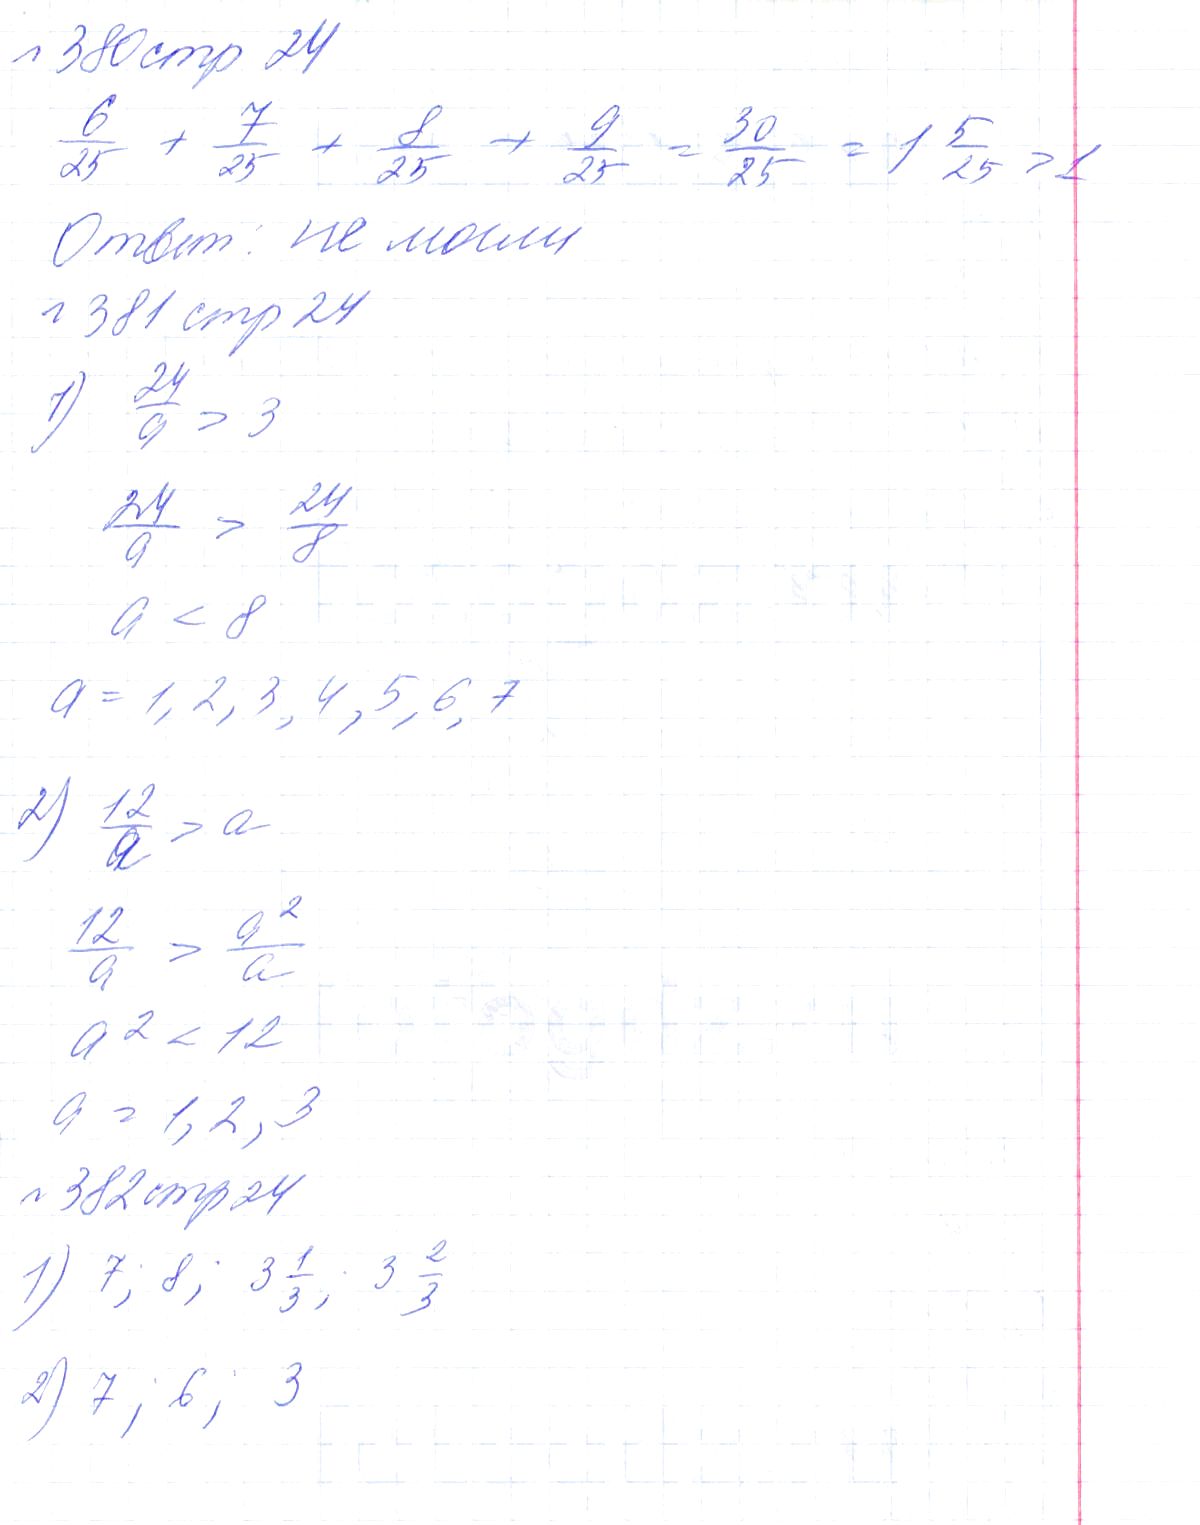 № 380 стр 24
6/25 + 7/25 + 8/25 + 9/25 = 30/25 = 1 5/25 > 1
Ответ: не могли
№ 381 стр 24
1) 24/a > 3
24/a > 24/8
a < 8
a = 1, 2, 3, 4, 5, 6, 7
2) 12/a > a
12/a > a²/a
a² < 12
a = 1, 2, 3
№ 382 стр 24
1) 7; 8; 3 1/3; 3 2/3
2) 7; 6; 3